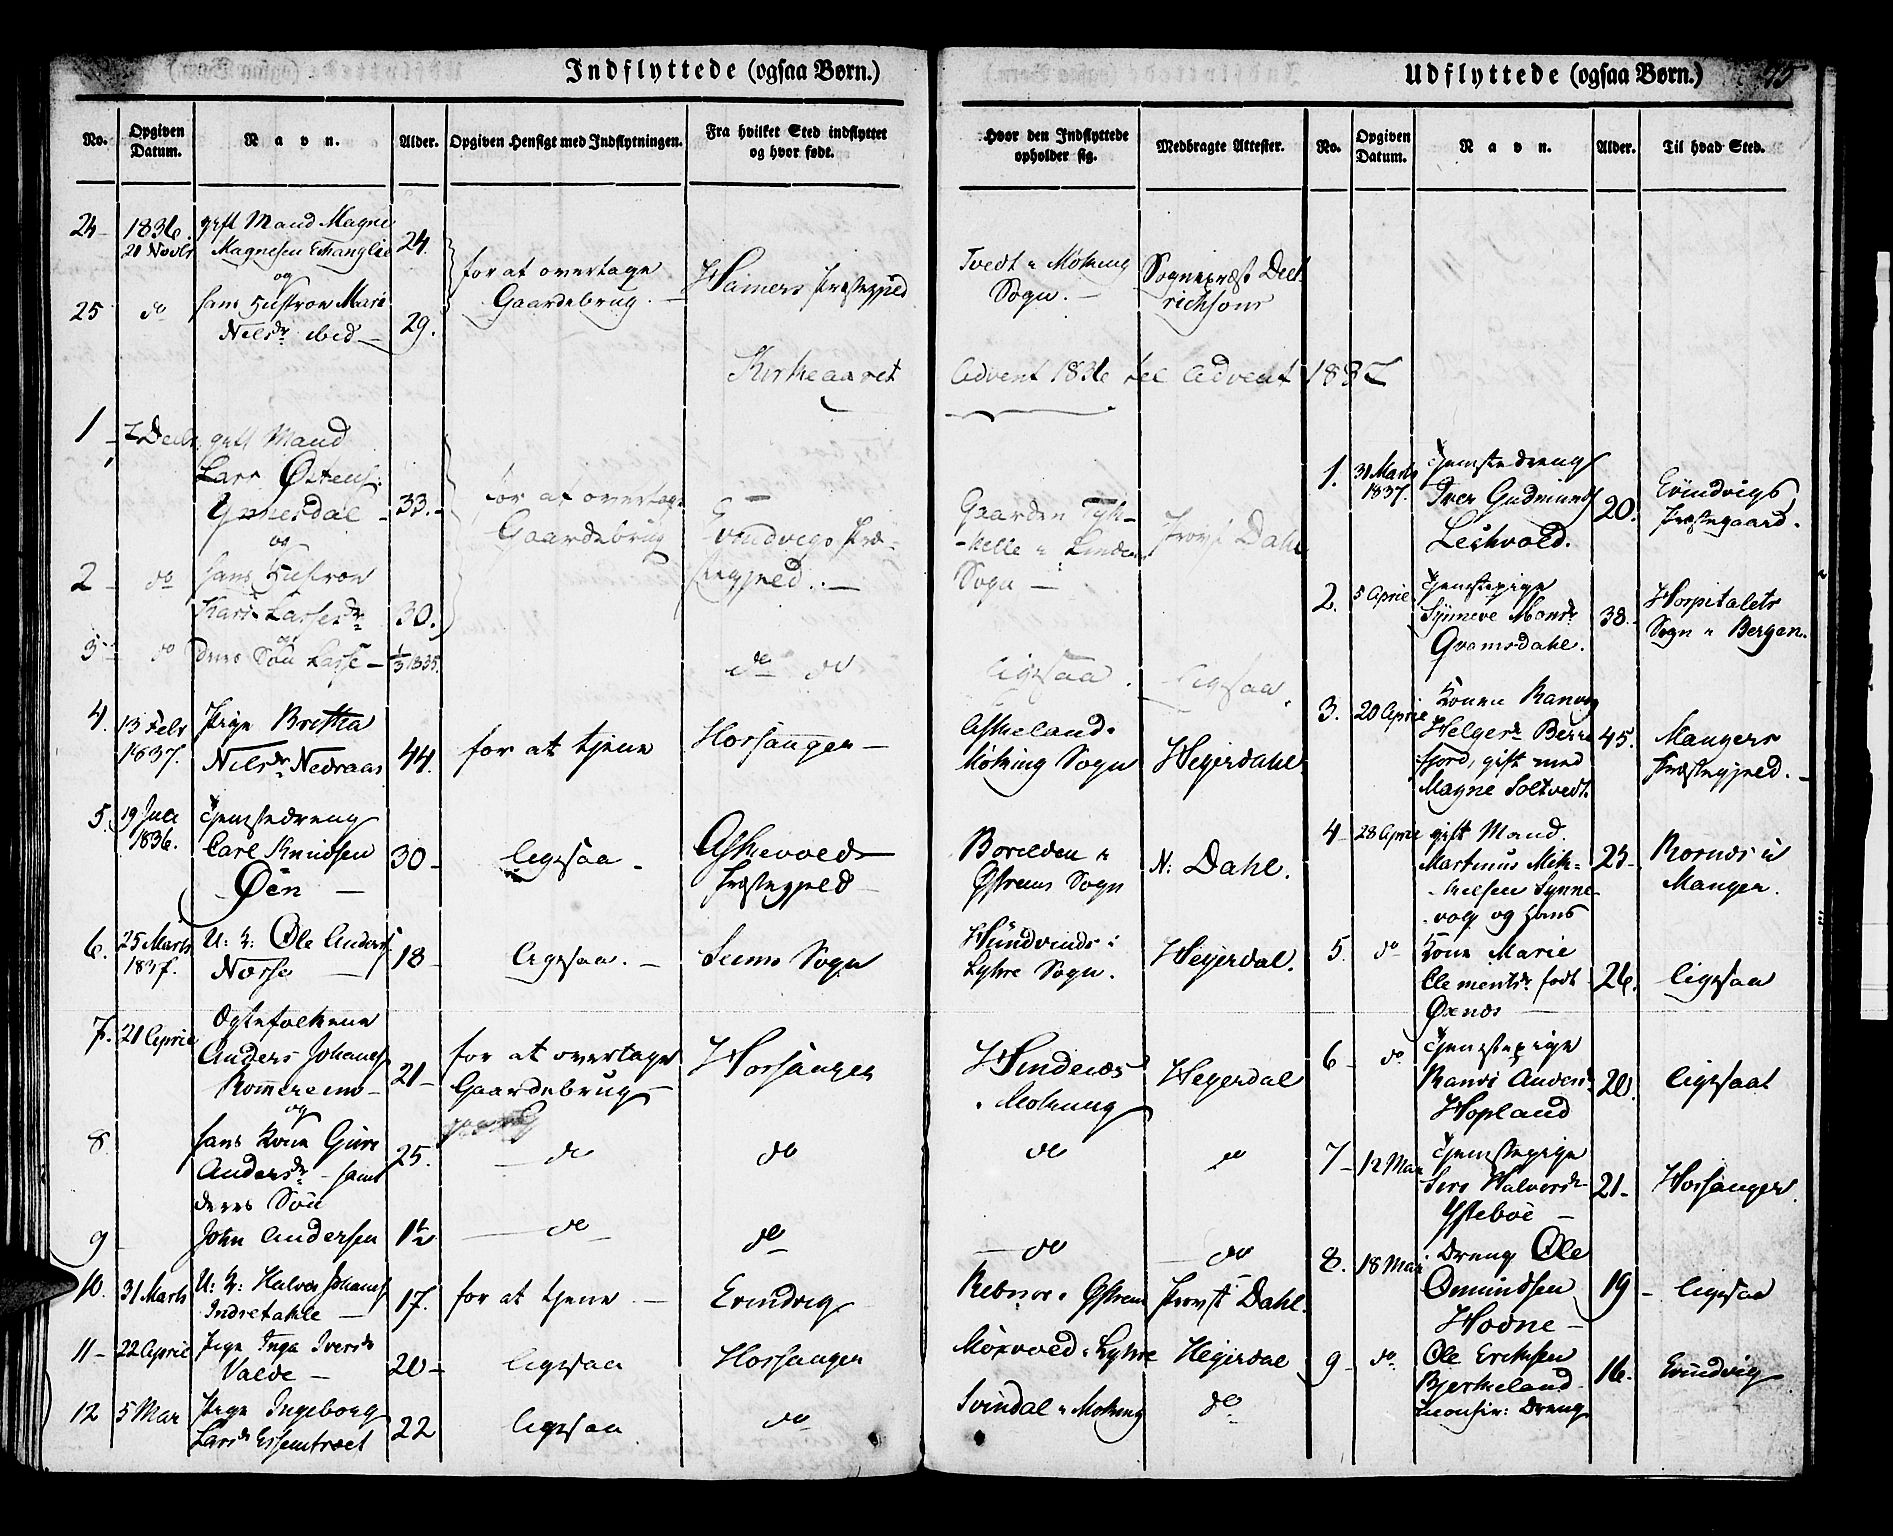 Indflyttede (ogsaa Børn.)
No.
Opgiven Datum.
Navn.
Alder.
Opgiven Hensigt med Indflytningen.
Fra hvilket Sted indflyttet og hvor født.
Hvor den Indflyttede opholder sig.
Medbragte Attester.
24 1836. gift Mand Magne
20 Novbr Magnesen 24.
og
for at overtage
Gaardebrug.
Hamers Præstegjeld
Tvedt i Mokning
Sogn.
Sognepræst Diet-
richsons
25 do hans Hustroe Mari
Nilsdr ibid 29.
Kirkeaaret Advent 1836 til Advent 1837
1 2 Decbr gift Mand
Lars Østens.
Ynnesdal 33.
og
for at overtage
Gaardebrug
Evindvigs Præ-
stegjeld.
Gaarden
i
Sogn
Provst Dahl
2 do hans Hustroe
Kari Lassesdr 30.
og
3 do deres Søn Lasse 1/3 1835.
do do
ligesaa.
ligesaa.
4. 13 Febr Pige Brittha
1837. Nilsdr Nedraas 44.
for at tjene
Hossangen
Askeland
Mokning Sogn
Hegerdahl
5. 19 Juli Tjenstedreng
1836. Carl Knudsen 30
Øen
ligesaa
Askevold
Præstegjeld
i
Østrems Sogn
N: Dahl.
6. 25 Marts U: K: Ole Anders
1837. Næsse 18
ligesaa.
Seims Sogn
Hundvinds i
Lykre Sogn.
Hegerdal.
7. 21 April Egtefolkene
Anders Johans 21
Rommereim
og
for at overtage
Gaardebrug
Hossangen
Hindenæs
i Mokning
Hegerdal
8. hans Kone Guro
Andersdr samt 25.
deres Søn
do
do
do
do
9 John Andersen 1½
do
do
do
do
10. 31 Marts U: K: Halvor Johans
Indretakle 17.
for at tjene
Evindvig
Rebnor i Østrem
Provst Dahl.
11 22 April Pige Inga Iversdr
Valde 20
ligesaa
Hossangen
i Lykre
Hegerdal
12 5 Mai Pige Ingeborg
Larsdr 22
ligesaa
do
Svindal i Mokning
do
Udflyttede (ogsaa Børn.) 95
No.
Opgiven Datum.
Navn.
Alder.
Til hvad Sted.
1. 31 Marts Tjenstedreng
1837. Iver Gudmunds 20.
Leirvold.
Evindvigs
Præstegaard.
2. 5 April Tjenstepige
Synneve Monsdr 38.
Qvamsdahl.
Hospitalets
Sogn i Bergen.
3. 20 April Konen Ranvei
Helgesdr 45.
fjord, gift med
Magne Soltvedt.
Mangers
Præstegjeld.
4 28 April gift Mand
Martinus Mik-
kelsen Synne-
vaag og hans
25
i
Manger.
5. do Kone Marie
Clementsdr født 26.
Øxnæs
ligesaa
6 do Tjenstepige
Randi Anders 20.
Hopland
ligesaa
7 12 Mai Tjenstepige
Siri Halvorsdr 21
Ystebøe
Hossanger.
8. 18 Mai Dreng Ole
Osmundsen 19
Hodne
ligesaa
9 do Ole Eriksen
Bjerkeland 16.
confir: Dreng
Evindvig